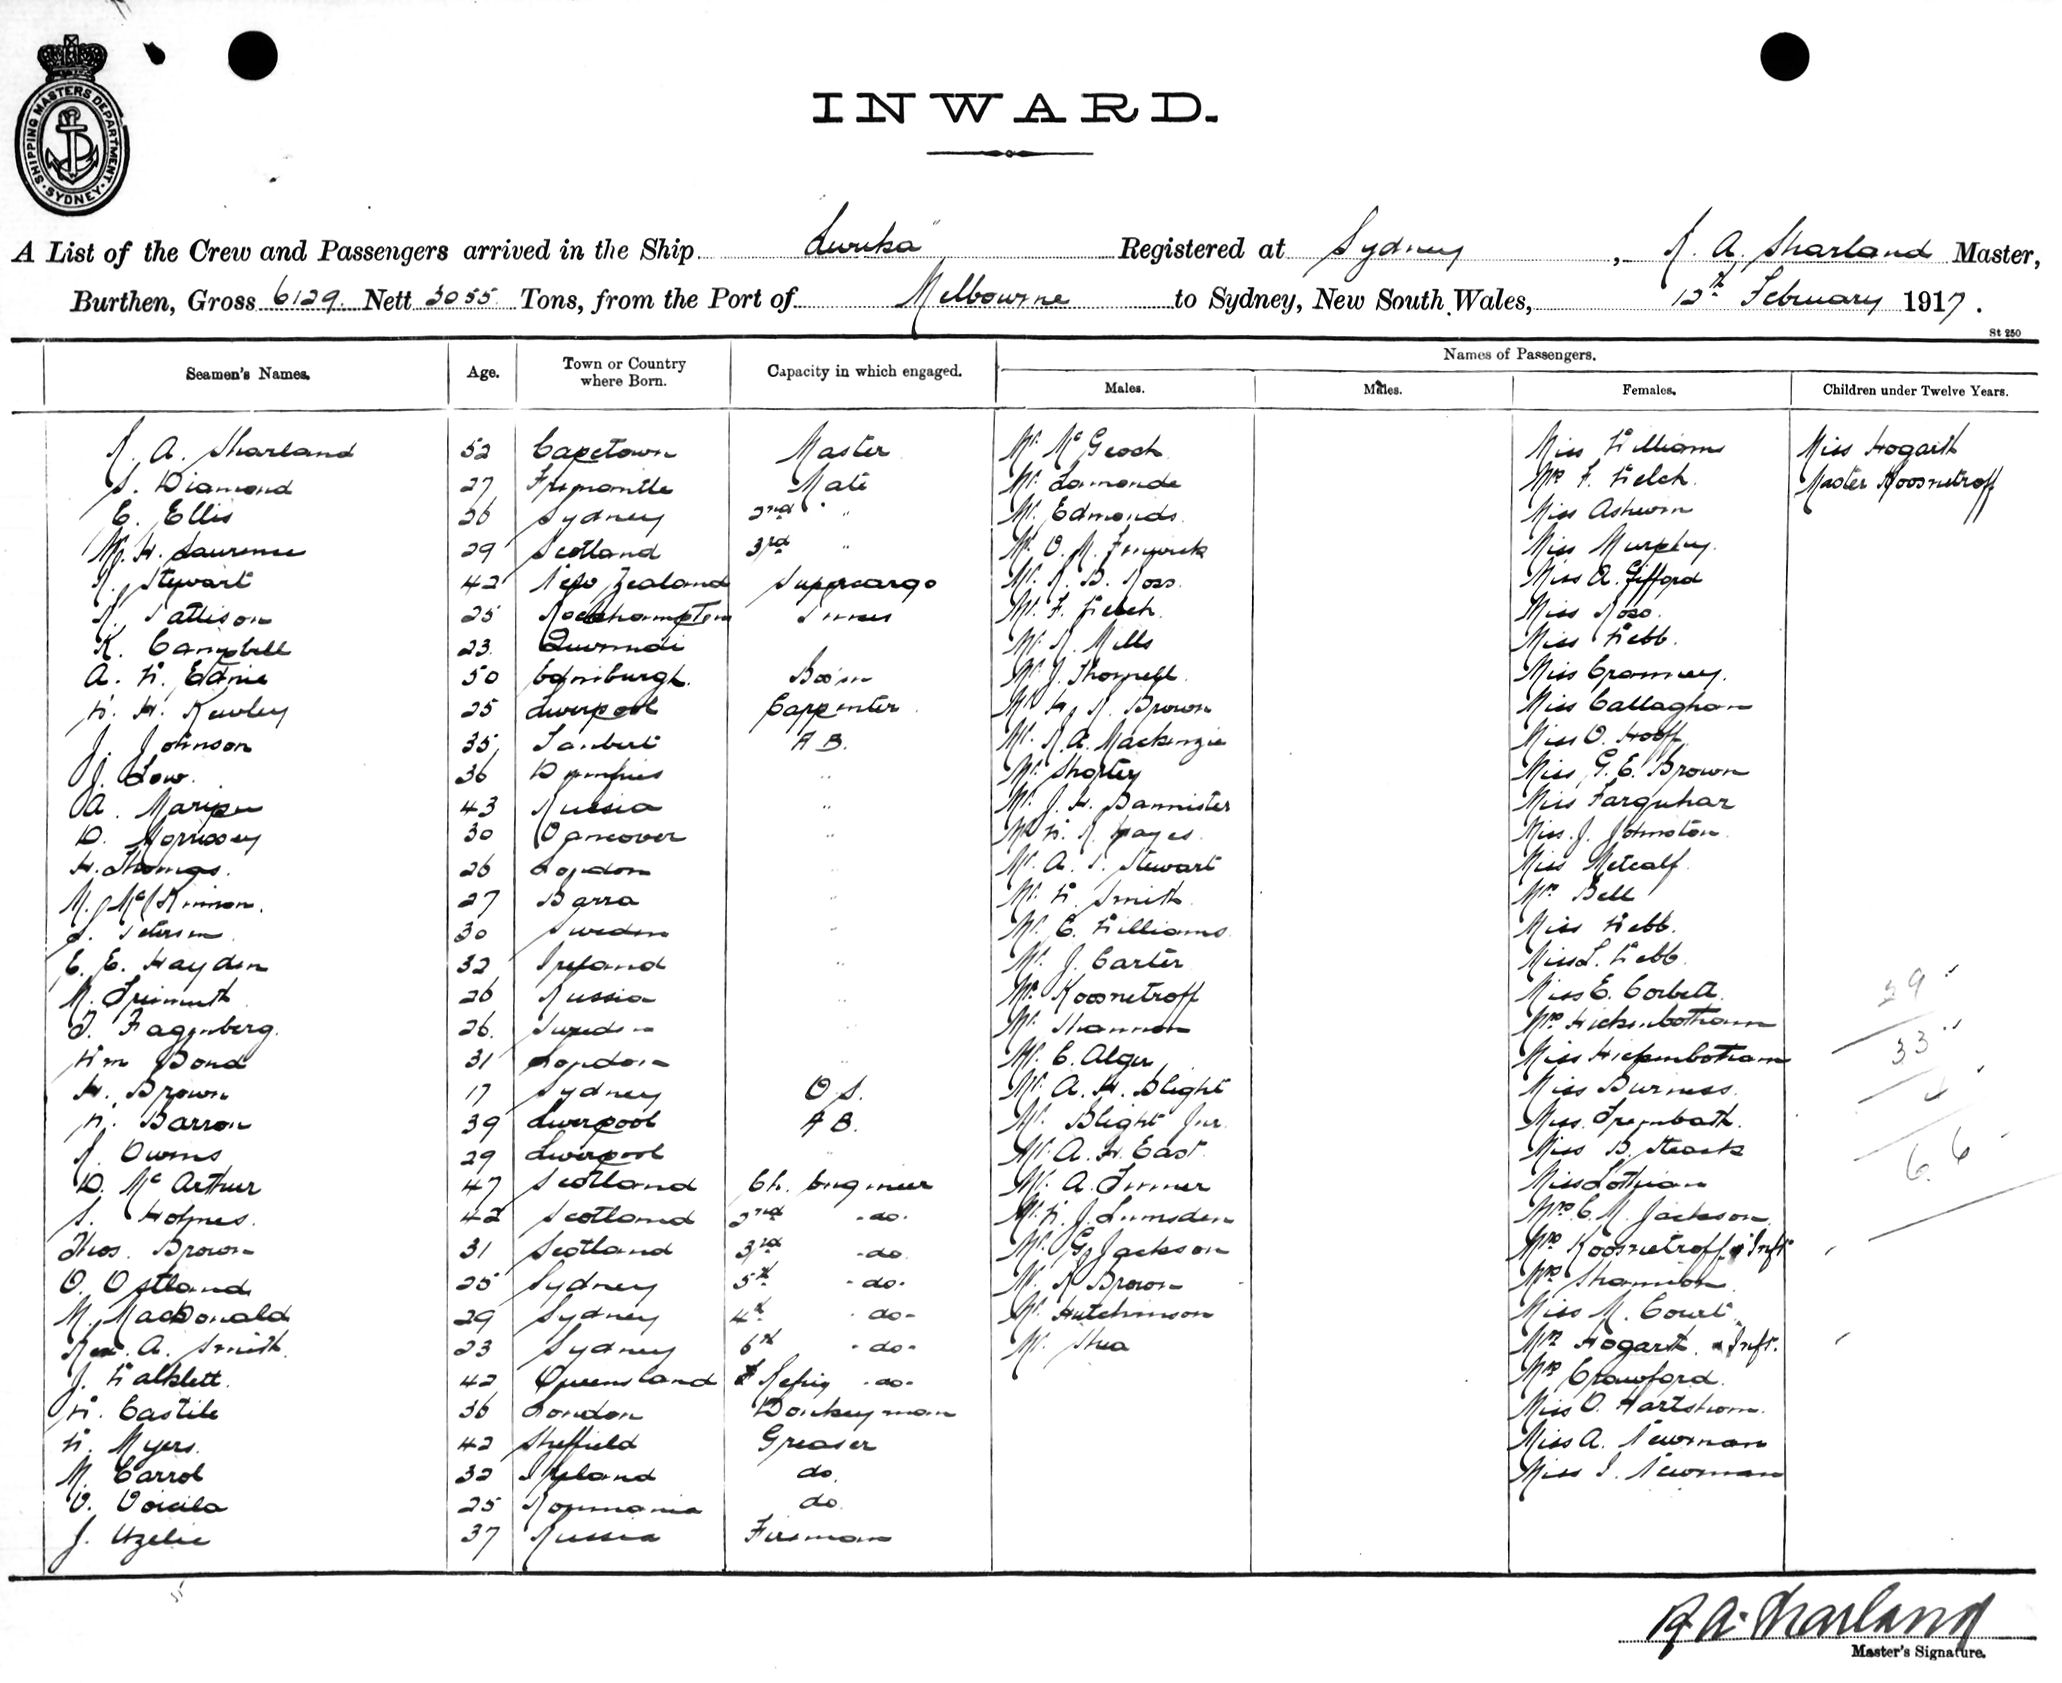 SHIPPING MASTERS DEPARTMENT. SYDNEY
INWARD.
A List of the Crew and Passengers arrived in the Ship "Levuka" Registered at Sydney, R. A. Sharland Master,
Burthen, Gross 6129. Nett 3055 Tons, from the Port of Melbourne to Sydney, New South Wales, 12th February 1917.
St 250
Names of Passengers.
Seamen's Names. Age. Town or Country where Born. Capacity in which engaged. Males. Males. Females. Children under Twelve Years.
R. A. Sharland 52 Capetown Master Mr. McGeoch Miss Williams Miss Hogarth
S. Diamond 27 Fremantle Mate Mr. Lamonde Mrs F. Welch Master Koosnetroff
C. Ellis 26 Sydney 2nd " Mr. Edmonds Miss Ashwin
W. H. Laurence 29 Scotland 3rd " Mr. O. R. Fenwick Miss Murphy
R. Stewart 42 New Zealand Supercargo Mr. R. B. Ross Miss A. Gifford
R. Pattison 25 Rockhampton Mr. F. Welch Miss Ross
K. Campbell 23 Mr. R. Mills Miss Webb.
A. W. Edmie 50 Edinburgh. Bo'sn Mr. J. Thornell Miss Cranney.
W. H. Kewley 25 Liverpool Carpenter Mr. H. R. Brown Miss Callaghan
J. Johnson 35 A B. Mr. R. A. Mackenzie Miss O. Hooff
J. Low. 36 Dumfries " Mr. Shortey Miss G. E. Brown
A. 43 Russia " Mr. J. H. Bannister Miss Farquhar
D. Morrissey 30 Vancover " Mr. W. R. Hayes Miss. J. Johnston
H. Thomas. 26 London " Mr. A. S. Stewart Miss Metcalf
M. McKinnon. 27 Barra " Mr. W. Smith Mrs Bell
S. Petersen 30 Sweden " Mr. C. Williams Miss Webb.
C. E. Hayden 32 Ireland " Mr. J. Carter Miss L. Webb
M. 26 Russia " Mr. Koosnetroff Miss E. Corbett 29
T. Fagenberg. 26. Sweden " Mr. Shannon Mrs Hickinbotham
Wm Bond 31 London " Mr. C. Alger Miss Hickinbotham 33
H. Brown 17 Sydney O S. Mr. A. H. Blight Miss Burness
W. Barron 39 Liverpool A B. Mr. Blight Jnr. Miss. Trembath.
R. Owens 29 Liverpool " Mr. A. H. East. Miss B.
D. McArthur 47 Scotland Ch. Engineer Mr. A. Miss Lothian 66
S. Holmes. 42 Scotland 2nd -do- Mr. W. J. Lumsden Mrs C. M. Jackson
Thos. Brown 31 Scotland 3rd -do Mr. G. Jackson Mrs Koosnetroff & Inft
O. Ostland 25 Sydney 5th -do- Mr. R Brown Mrs Shannon
M. MacDonald 29 Sydney 4th -do- Mr. Hutchinson Miss M. Court
Rex. A. Smith 23 Sydney 6th -do- Mr. Shea Mrs Hogarth & Inft.
J. 42 Queensland Refrig -do- Mrs Crawford
W. Castile 36 London Donkeyman Miss O. Hartshorn
W. Myers. 42 Sheffield Greaser Miss A. Newman
M. Carrol 32 Ireland do. Miss I. Newman
V. Voicila 25 Roumania do.
J. Uzelie 37 Russia Fireman
R. A. Sharland
Master's Signature.